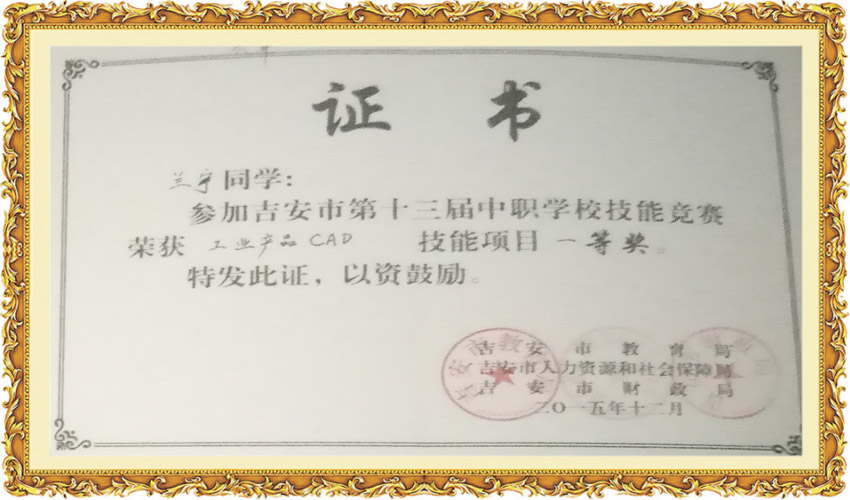 证 书
兰宇同学:
参加吉安市第十三届中职学校技能竞赛
荣获 工业产品CAD 技能项目 一等奖。
特发此证，以资鼓励。
吉安市教育局
吉安市人力资源和社会保障局
吉安市财政局
二〇一五年十二月